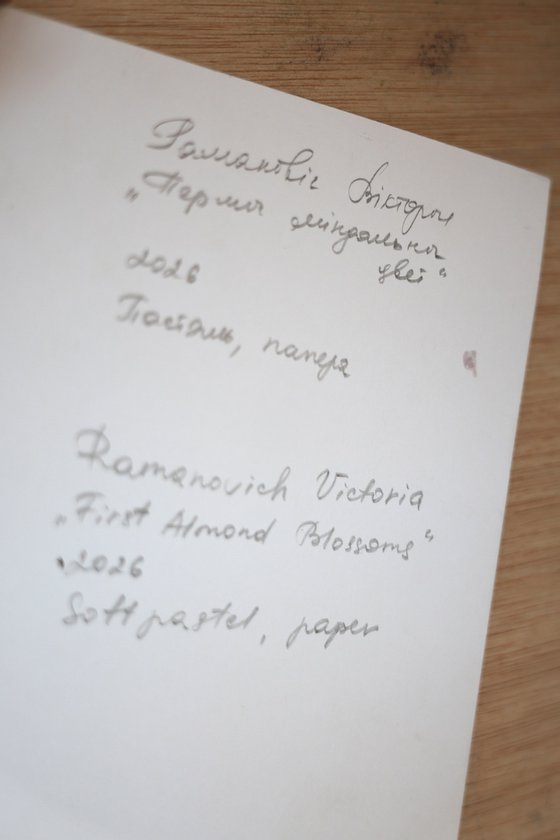 Рамановіч Вікторыя
„Першы міндальны
цвет“
2026
Пастэль, папера
Ramanovich Victoria
„First Almond Blossoms“
2026
Soft pastel, paper